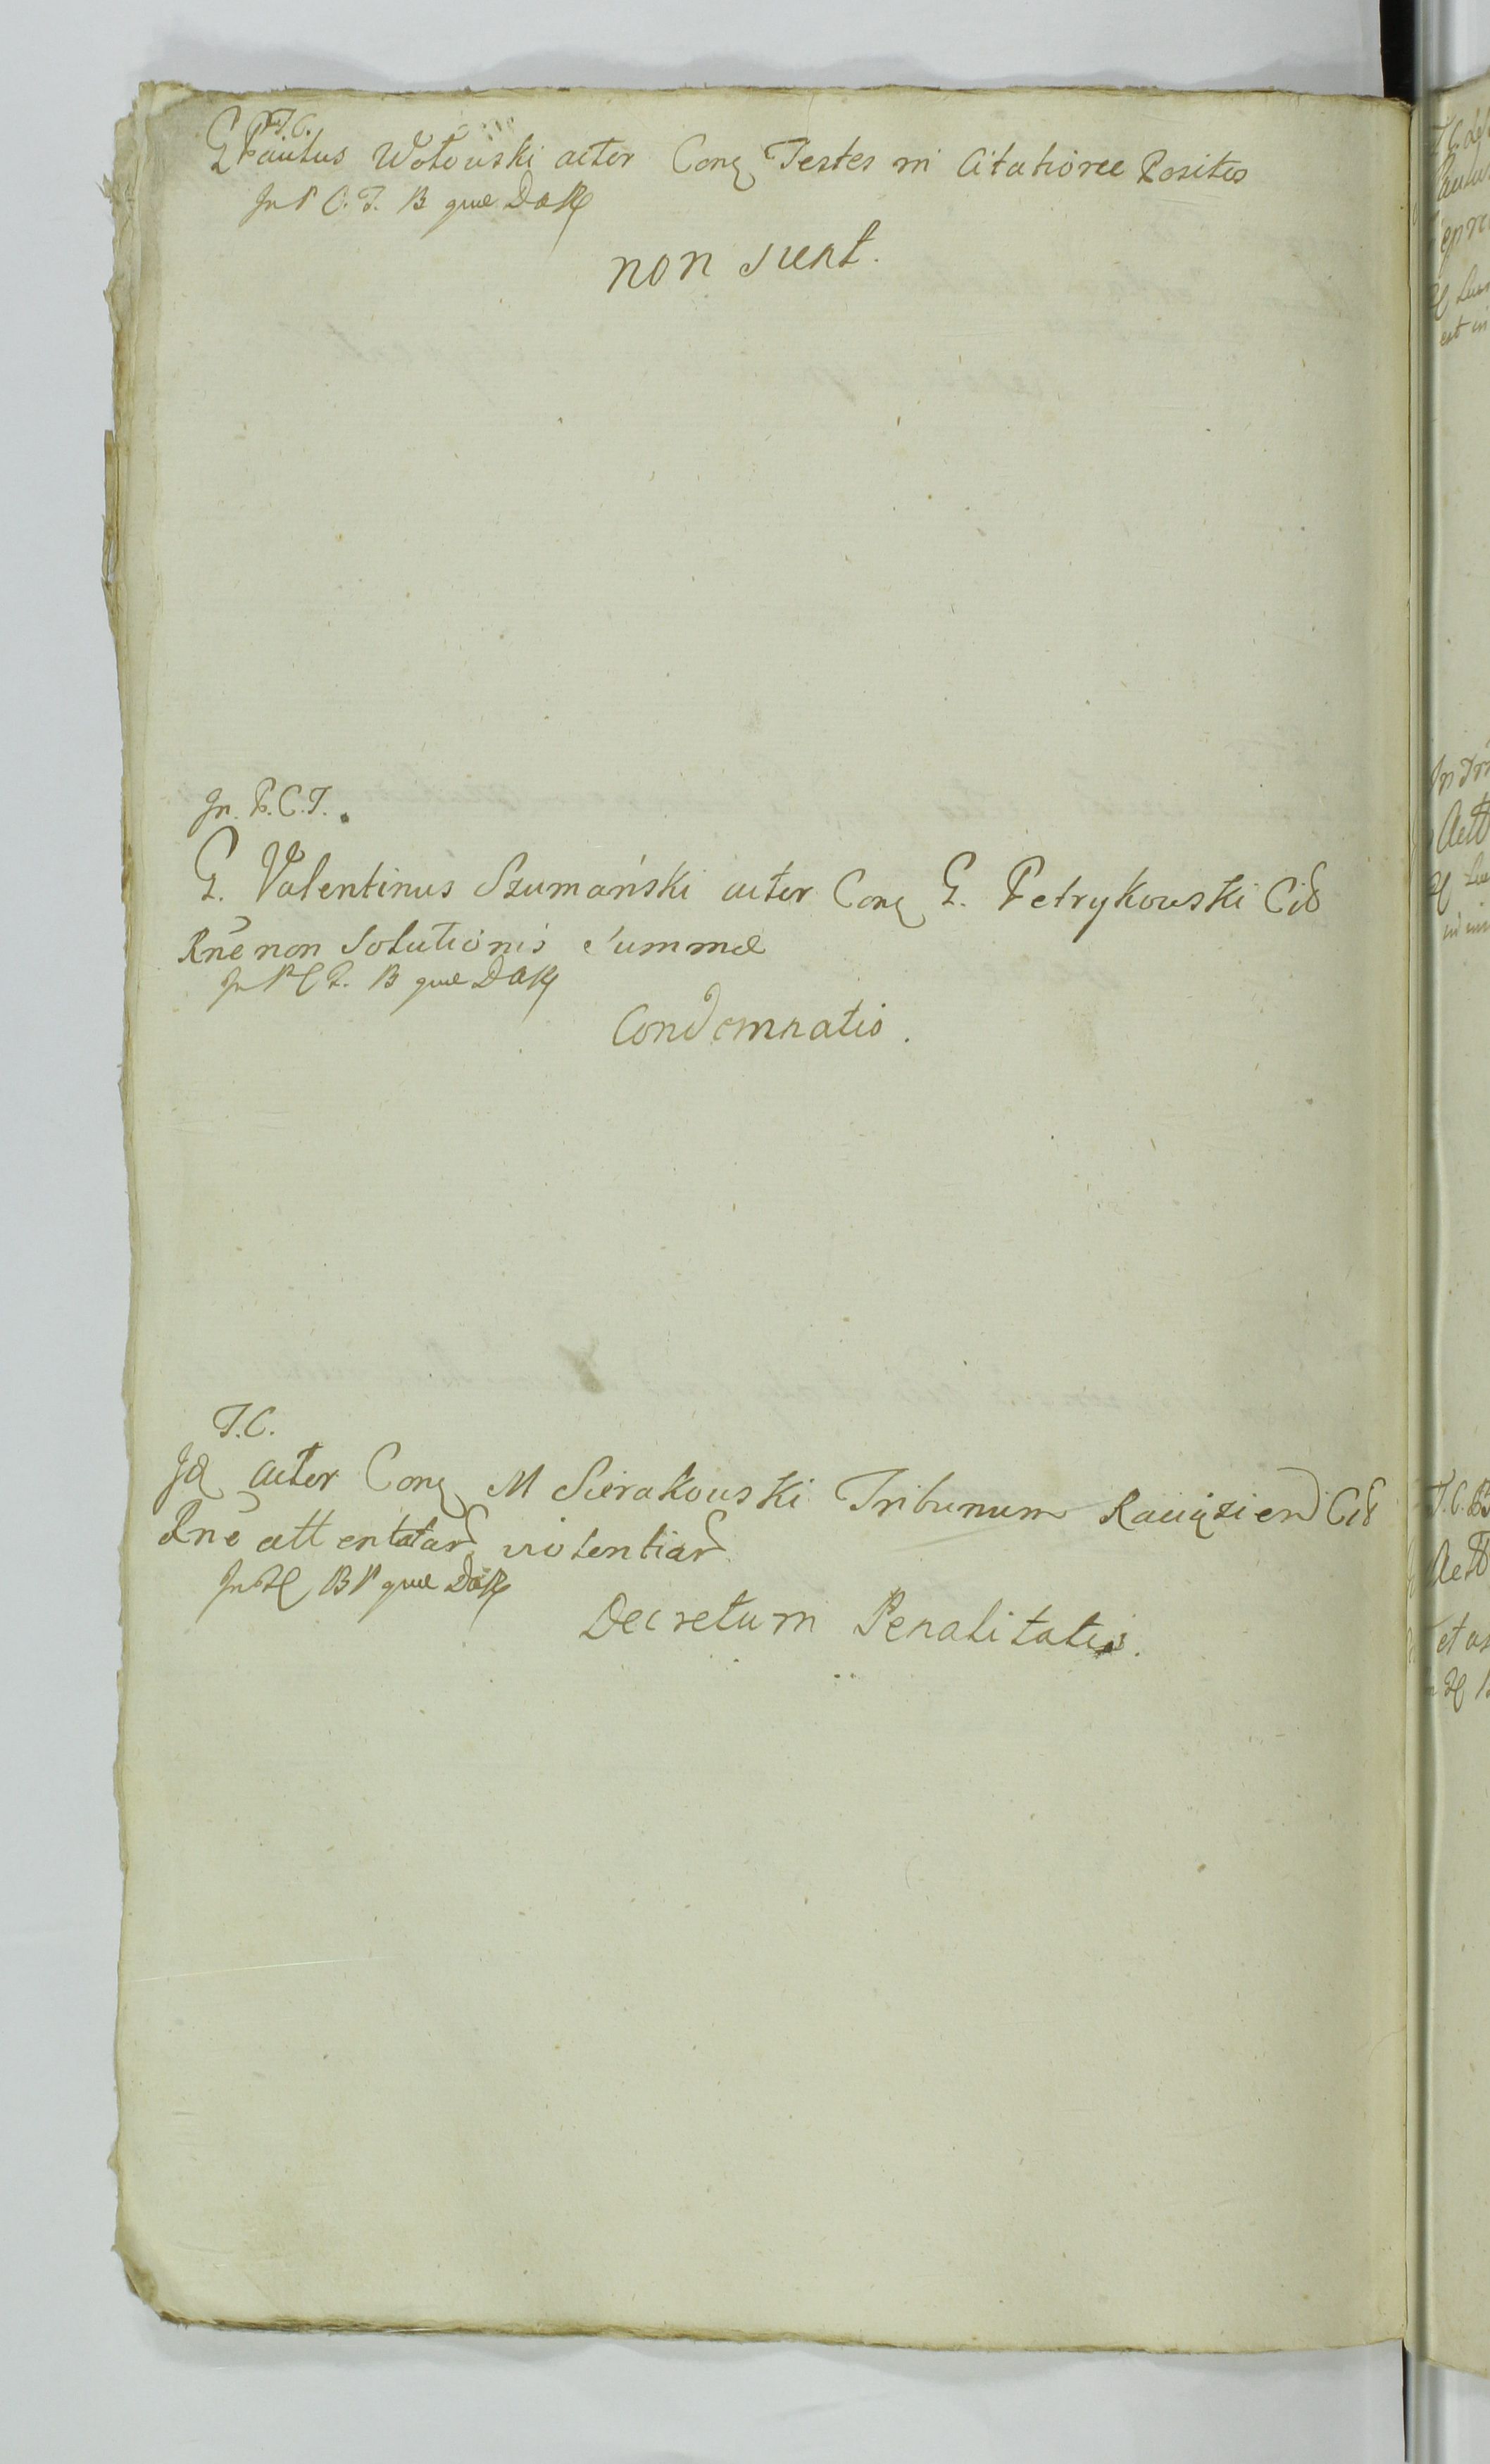 T.C.
G Paulus Wołowski actor Conq Testes in Citatione Positos
In P C. T. B quæ Dorq
non sunt.
In. P. C. T.
G. Valentinus Szumański actor Conq G. Petrykowski Cit
Rne non Solutionis Summæ
In P C T. B quæ
Condemnatio.
T.C.
Id actor Conq M Sierakowski Tribunum Raciązien Cit
Rne attentatar violentiar
B P quæ
Decretum Penalitatis.